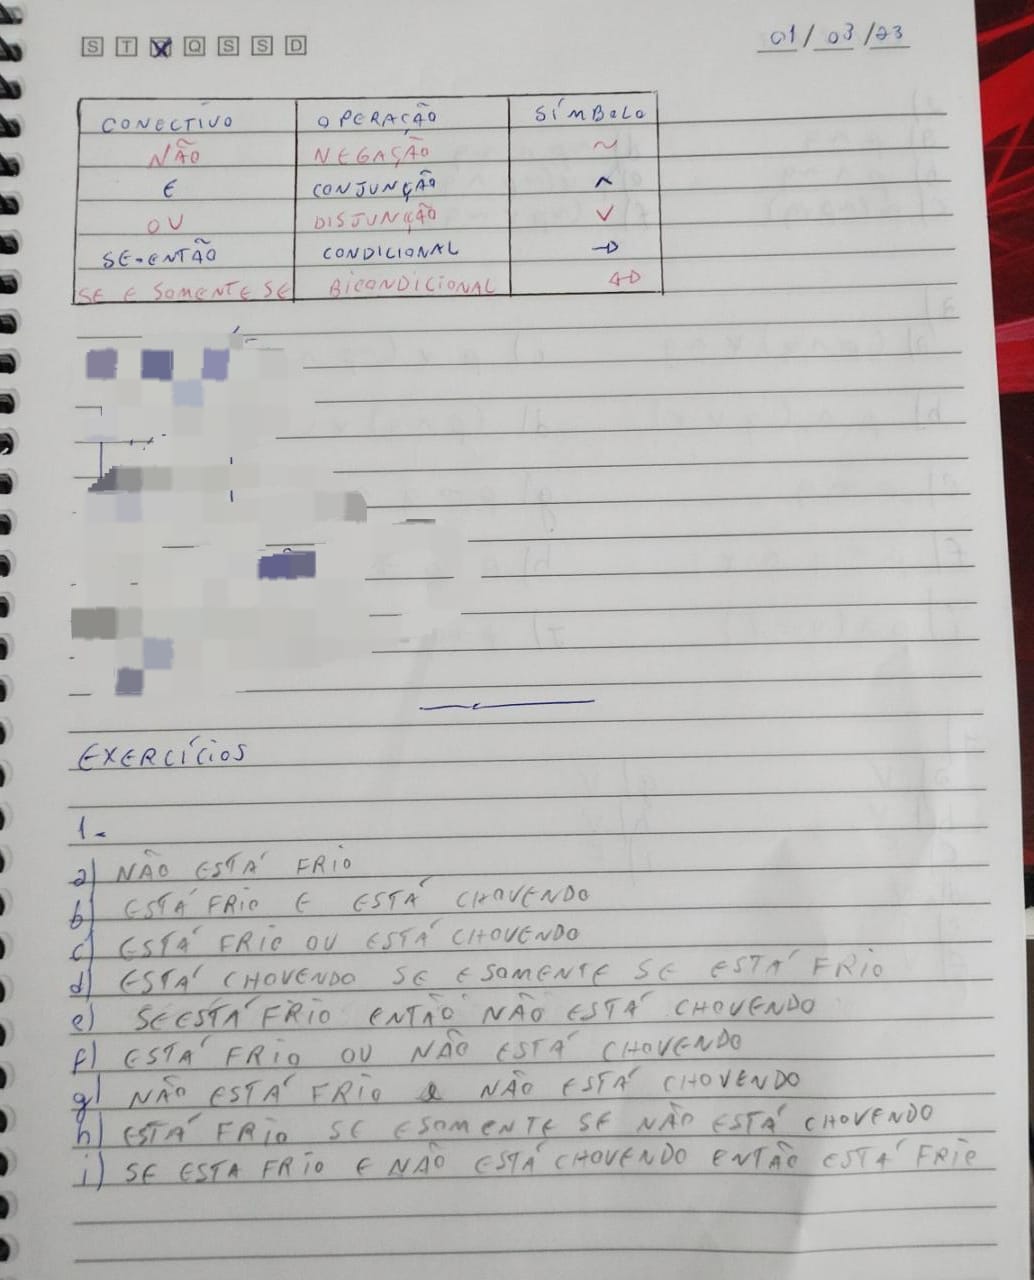 S T X Q S S D
01/03/23
CONECTIVO OPERAÇÃO SÍMBOLO
NÃO NEGAÇÃO ~
E CONJUNÇÃO ^
OU DISJUNÇÃO v
SE-ENTÃO CONDICIONAL →
SE E SOMENTE SE BICONDICIONAL ↔
EXERCÍCIOS
1-
a) NÃO ESTÁ FRIO
b) ESTÁ FRIO E ESTÁ CHOVENDO
c) ESTÁ FRIO OU ESTÁ CHOVENDO
d) ESTÁ CHOVENDO SE E SOMENTE SE ESTÁ FRIO
e) SE ESTÁ FRIO ENTÃO NÃO ESTÁ CHOVENDO
f) ESTÁ FRIO OU NÃO ESTÁ CHOVENDO
g) NÃO ESTÁ FRIO e NÃO ESTÁ CHOVENDO
h) ESTÁ FRIO SE E SOMENTE SE NÃO ESTÁ CHOVENDO
i) SE ESTA FRIO E NÃO ESTÁ CHOVENDO ENTÃO ESTÁ FRIO